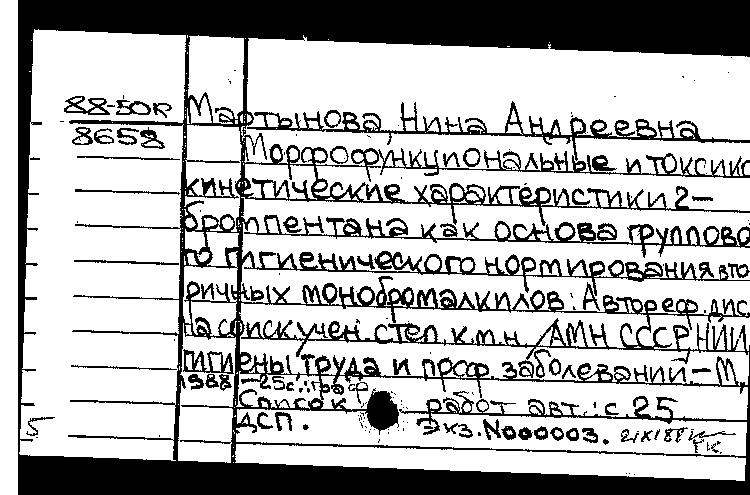 88-50R
8658
Мартынова, Нина Андреевна
Морфофункциональные и токсико
кинетические характеристики 2-
бромпентана как основа группово
го гигиенического нормирования вто
ричных монобромалкилов: Автореф. дис.
на соиск. учен. степ. к.м.н. / АМН СССР, НИИ
гигиены труда и проф. заболеваний. - М.,
1988 - 25 с.: граф.
Список работ авт.: с. 25
ДСП. Экз. N000003.
5